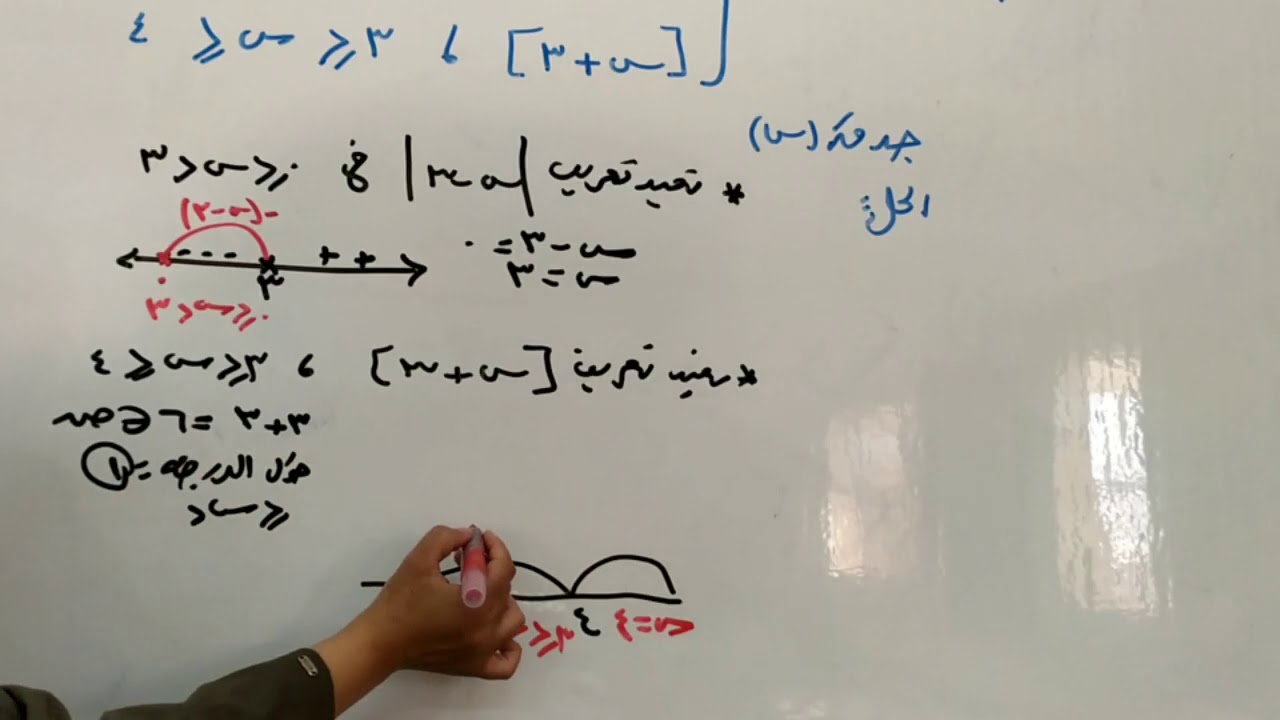 [س + ٣] ، ٣ ≤ س ≤ ٤
جد قد(س)
الحل:
* نعيد تعريف |س - ٣| في ٠ ≤ س < ٣
س - ٣ = ٠
س = ٣
-(س - ٣)
- - - + +
٠ ٣
٠ ≤ س < ٣
* نعيد تعريف [س + ٣] ، ٣ ≤ س ≤ ٤
٣ + ٣ = ٦ ∈ ص
طول الدرجة = ١
≤ س <
٣ ≤
٤
س = ٤